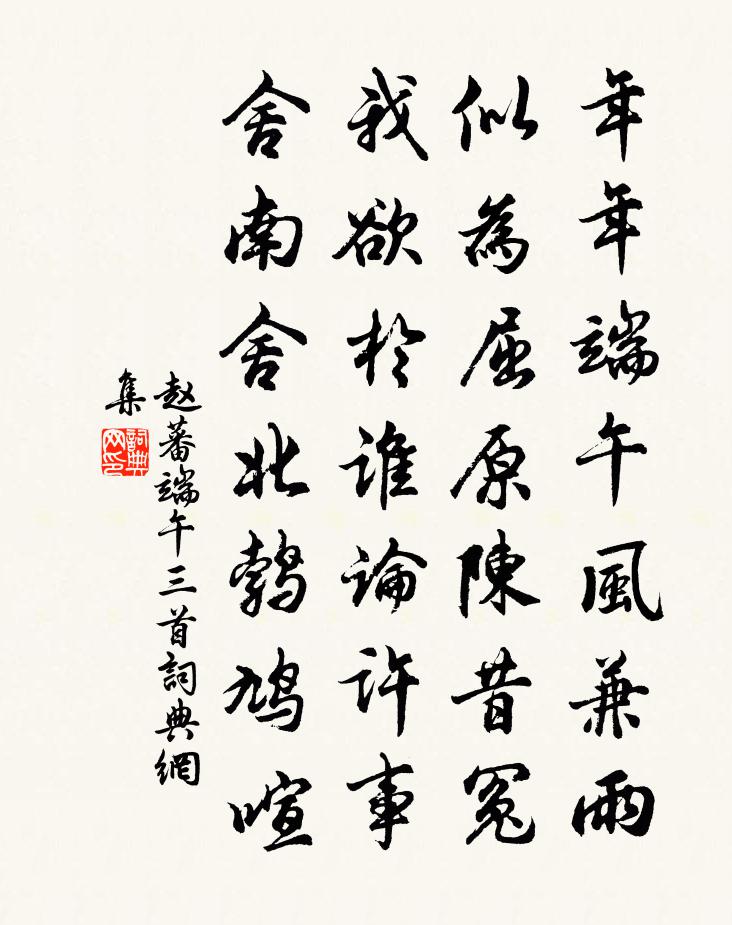 年年端午風兼雨
似為屈原陳昔冤
我欲於誰論許事
舍南舍北鵓鳩喧
赵蕃端午三首詞典網
集
詞典
网印